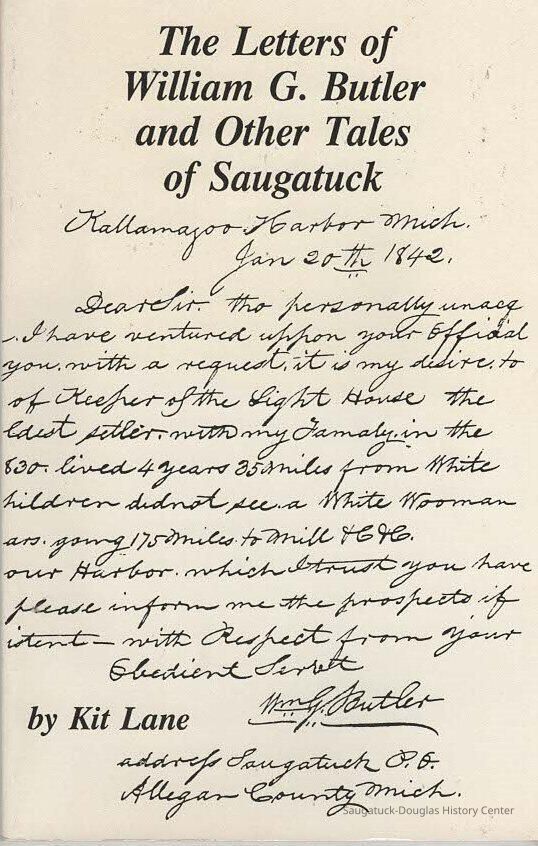 The Letters of
William G. Butler
and Other Tales
of Saugatuck
Kallamazoo Harbor Mich.
Jan 20th 1842.
Dear Sir. tho personally unacq
. I have ventured uppon your Official
you. with a request. it is my desire. to
of Keeper of the Light House the
ldest setler. with my Famaly. in the
830. lived 4 years 35 miles from White
hildren did not see. a White Wooman
ars. going 175 miles to Mill &C &C.
our Harbor. which I trust you have
please inform me the prospects if
istent — with Respect from your
Obedient Servt
Wm G. Butler
by Kit Lane
address Saugatuck P. O.
Allegan County Mich.
Saugatuck-Douglas History Center